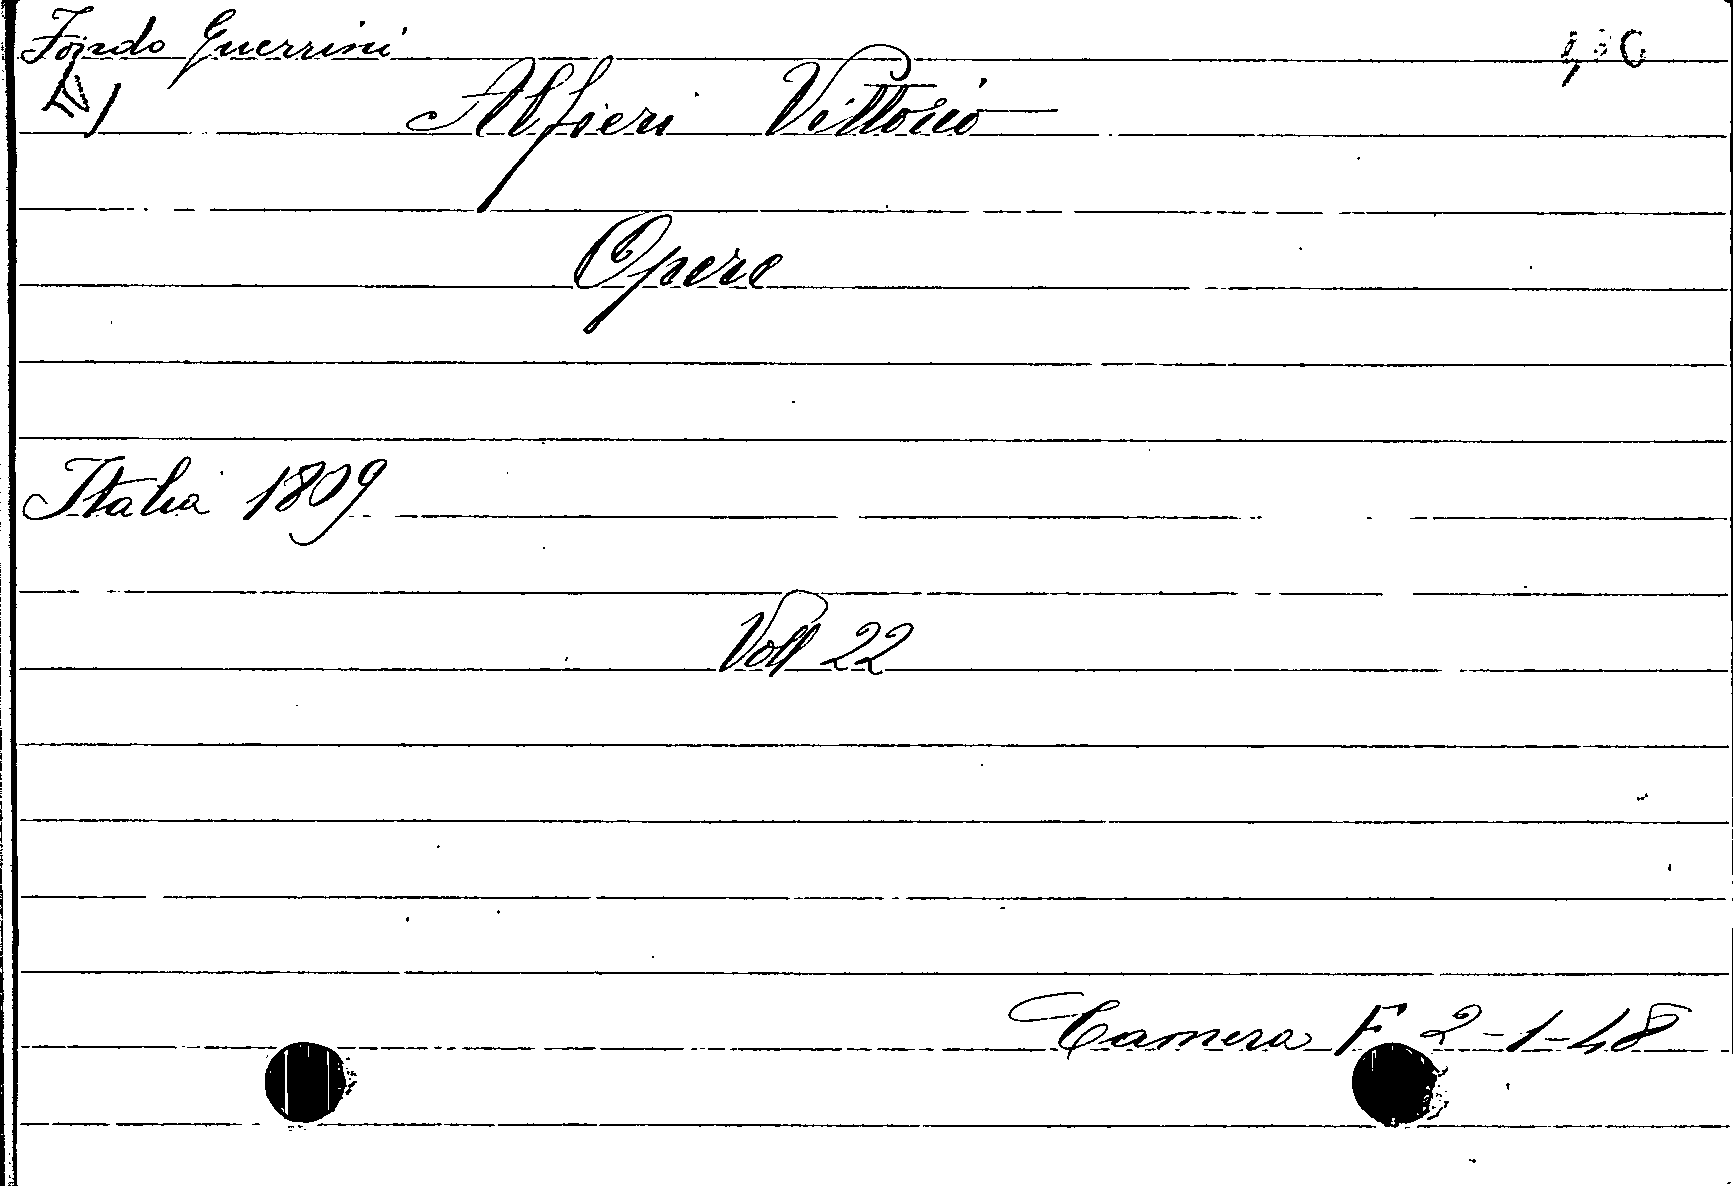 Fondo Guerrini
Alfieri Vittorio
Opere
Italia 1809
Voll 22
Camera F 2-1-48